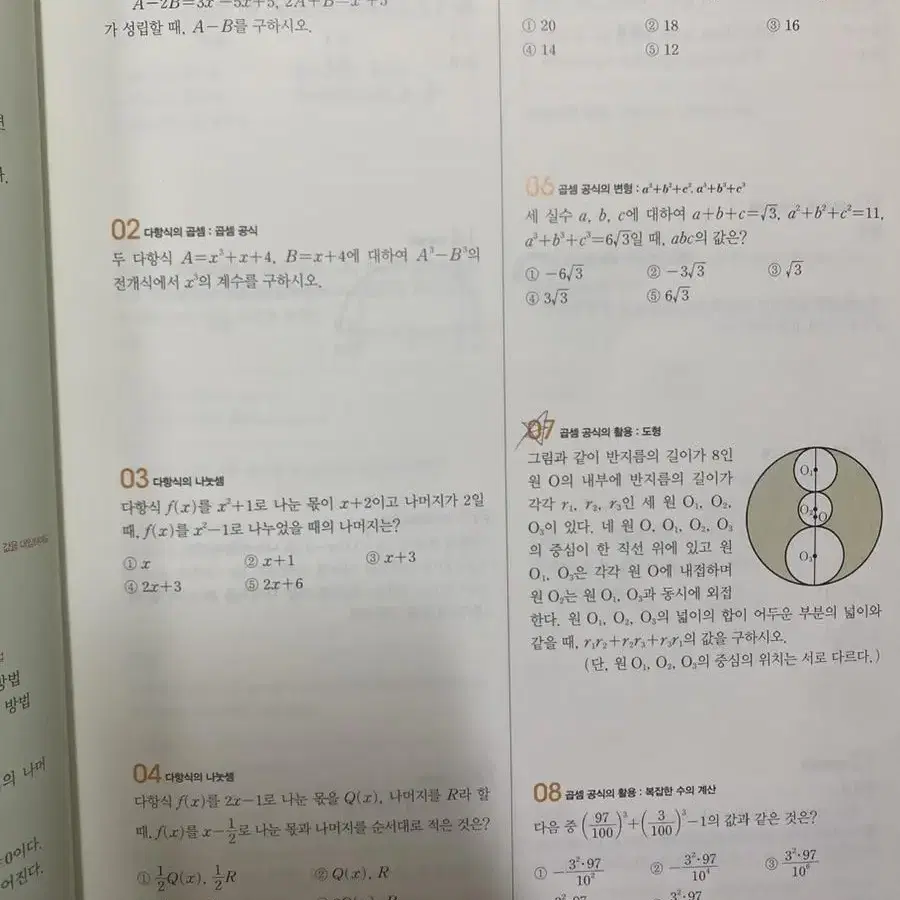 A-2B=3x²-5x+5, 2A+B=x²+5
가 성립할 때, A-B를 구하시오.
02 다항식의 곱셈 : 곱셈 공식
두 다항식 A=x³+x+4, B=x+4에 대하여 A³-B³의
전개식에서 x³의 계수를 구하시오.
03 다항식의 나눗셈
다항식 f(x)를 x²+1로 나눈 몫이 x+2이고 나머지가 2일
때, f(x)를 x²-1로 나누었을 때의 나머지는?
① x ② x+1 ③ x+3
④ 2x+3 ⑤ 2x+6
04 다항식의 나눗셈
다항식 f(x)를 2x-1로 나눈 몫을 Q(x), 나머지를 R라 할
때, f(x)를 x-1/2로 나눈 몫과 나머지를 순서대로 적은 것은?
① 1/2Q(x), 1/2R ② Q(x), R
① 20 ② 18 ③ 16
④ 14 ⑤ 12
06 곱셈 공식의 변형 : a²+b²+c², a³+b³+c³
세 실수 a, b, c에 대하여 a+b+c=√3, a²+b²+c²=11,
a³+b³+c³=6√3일 때, abc의 값은?
① -6√3 ② -3√3 ③ √3
④ 3√3 ⑤ 6√3
07 곱셈 공식의 활용 : 도형
그림과 같이 반지름의 길이가 8인
원 O의 내부에 반지름의 길이가
각각 r₁, r₂, r₃인 세 원 O₁, O₂,
O₃이 있다. 네 원 O, O₁, O₂, O₃
의 중심이 한 직선 위에 있고 원
O₁, O₃은 각각 원 O에 내접하며
원 O₂는 원 O₁, O₃과 동시에 외접
한다. 원 O₁, O₂, O₃의 넓이의 합이 어두운 부분의 넓이와
같을 때, r₁r₂+r₂r₃+r₃r₁의 값을 구하시오.
(단, 원 O₁, O₂, O₃의 중심의 위치는 서로 다르다.)
O₁
O₂
O
O₃
08 곱셈 공식의 활용 : 복잡한 수의 계산
다음 중 (97/100)³+(3/100)³-1의 값과 같은 것은?
① -3²·97/10² ② -3²·97/10⁴ ③ 3²·97/10⁶
방법
방법
의 나머
=0이다.
어진다.